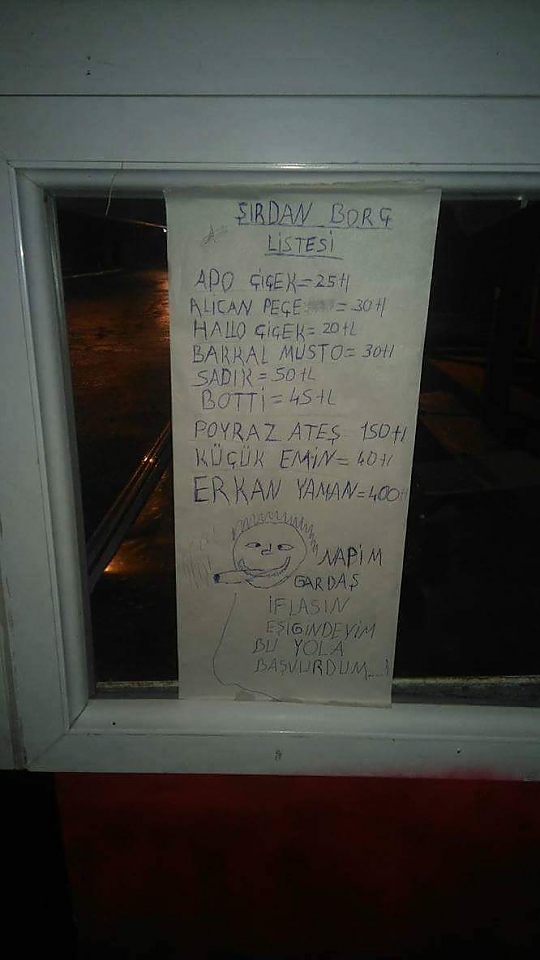 ŞIRDAN BORÇ
LİSTESİ
APO ÇİÇEK=25tl
ALICAN PEÇE = 30tl
HALLO ÇİÇEK= 20tL
BAKKAL MUSTO= 30tl
SADIK=50tL
BOTTİ=45tL
POYRAZ ATEŞ 150tl
KÜÇÜK EMİN= 40tl
ERKAN YAMAN=400tl
NAPİM
GARDAŞ
İFLASIN
EŞİGINDEYİM
BU YOLA
BAŞVURDUM....!